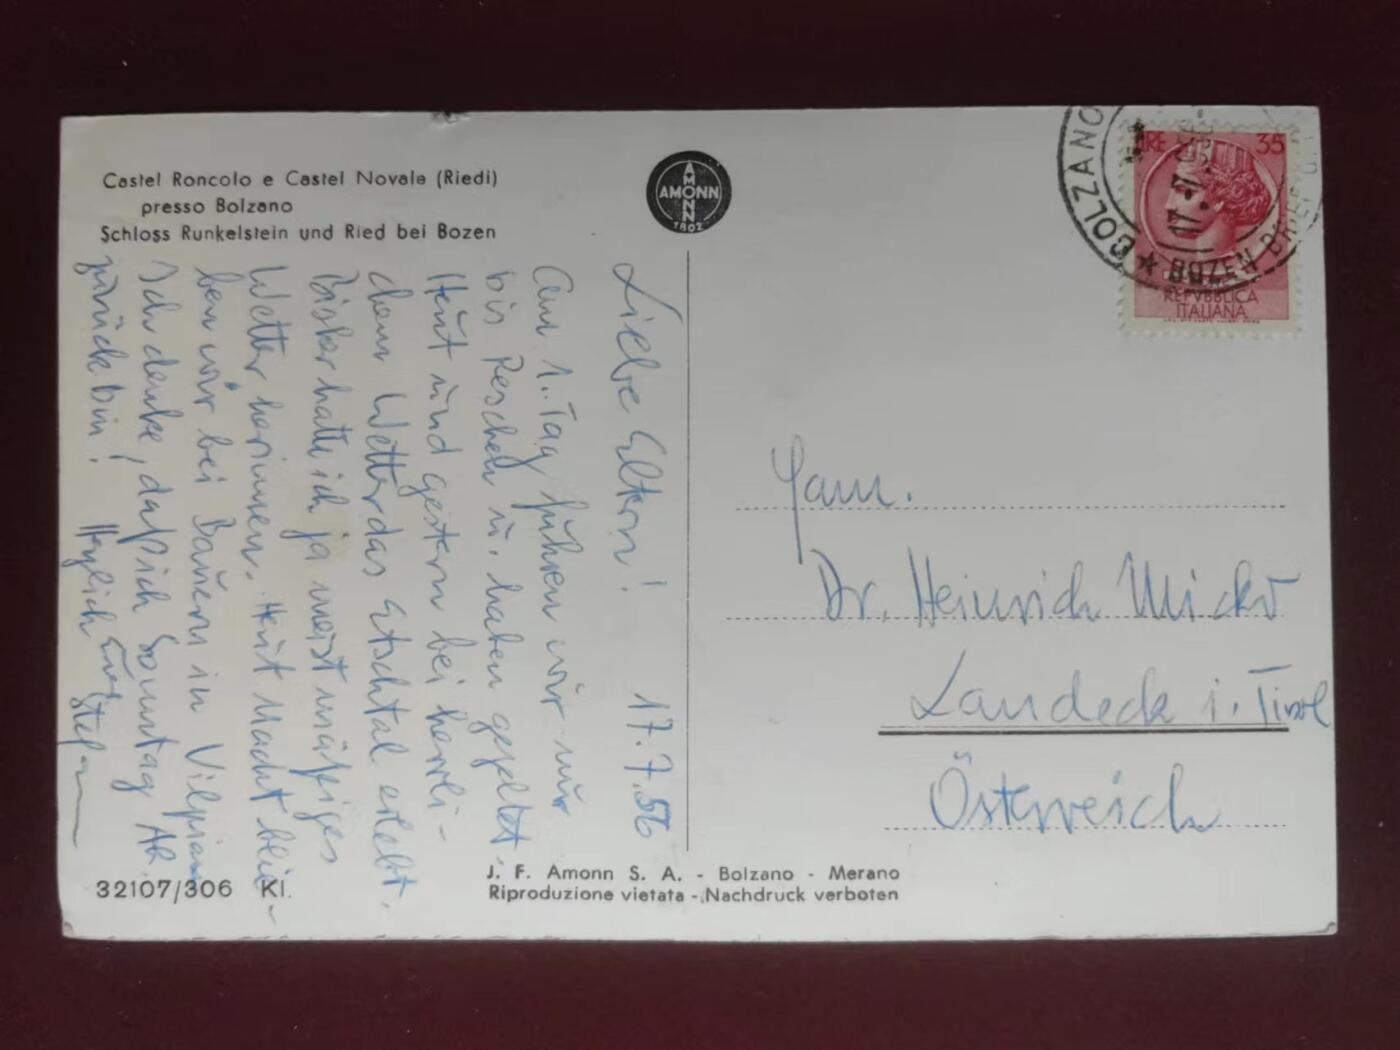 Castel Roncolo e Castel Novale (Riedi)
presso Bolzano
Schloss Runkelstein und Ried bei Bozen
AMONN
AMONN
1802
BOLZANO
17.-7.1956.-
BOZEN BRIEF
LIRE 35
REPVBBLICA
ITALIANA
Liebe Eltern! 17.7.56
Am 1. Tag fuhren wir nur
bis Reschen u. haben gezeltet.
Heut und gestern bei herrli-
chem Wetter das Etschtal erlebt.
Bisher hatte ich ja meist mäßiges
Wetter herinnen. Heut Nacht blie-
ben wir bei Bauern in Vilpian
Ich denke, daß ich Sonntag Ab.
zurück bin! Herzlich Euer Stefan
Fam.
Dr. Heinrich Micko
Landeck i. Tirol
Österreich
32107/306 Kl.
J. F. Amonn S. A. - Bolzano - Merano
Riproduzione vietata - Nachdruck verboten